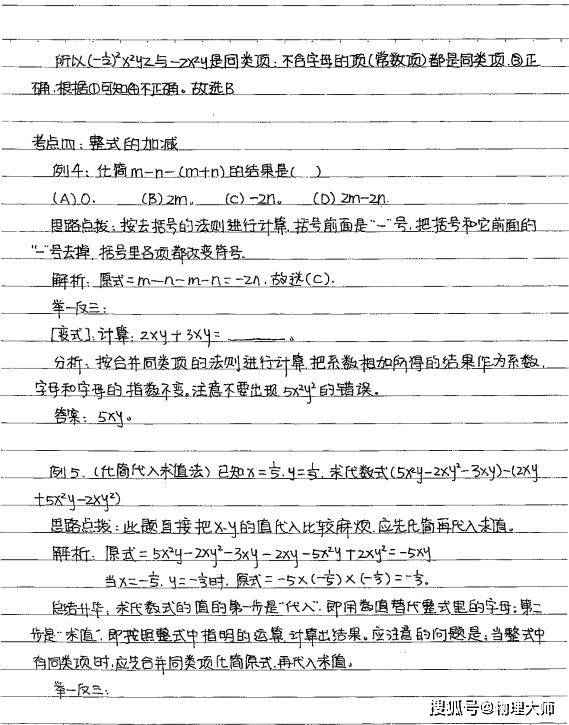 所以(-½)²x²yz与-2x²y是同类项;不含字母的项(常数项)都是同类项,③正
确,根据①可知④不正确。故选B
考点四:整式的加减
例4:化简m-n-(m+n)的结果是( )
(A)0. (B)2m。 (C)-2n。 (D)2m-2n.
思路点拨:按去括号的法则进行计算,括号前面是"-"号,把括号和它前面的
"-"号去掉,括号里各项都改变符号.
解析:原式=m-n-m-n=-2n.故选(C).
举一反三:
[变式]:计算:2xy+3xy= 。
分析:按合并同类项的法则进行计算,把系数相加所得的结果作为系数,
字母和字母的指数不变。注意不要出现5x²y²的错误。
答案:5xy。
例5.(化简代入求值法)已知x=-1/5,y=-1/3,求代数式(5x²y-2xy²-3xy)-(2xy
+5x²y-2xy²)
思路点拨:此题直接把x、y的值代入比较麻烦,应先化简再代入求值。
解析:原式=5x²y-2xy²-3xy-2xy-5x²y+2xy²=-5xy
当x=-1/5,y=-1/3时,原式=-5×(-1/5)×(-1/3)=-1/3。
总结升华:求代数式的值的第一步是"代入",即用数值替代整式里的字母;第二
步是"求值",即按照整式中指明的运算,计算出结果。应注意的问题是:当整式中
有同类项时,应先合并同类项化简原式,再代入求值。
举一反三:
搜狐号@物理大师